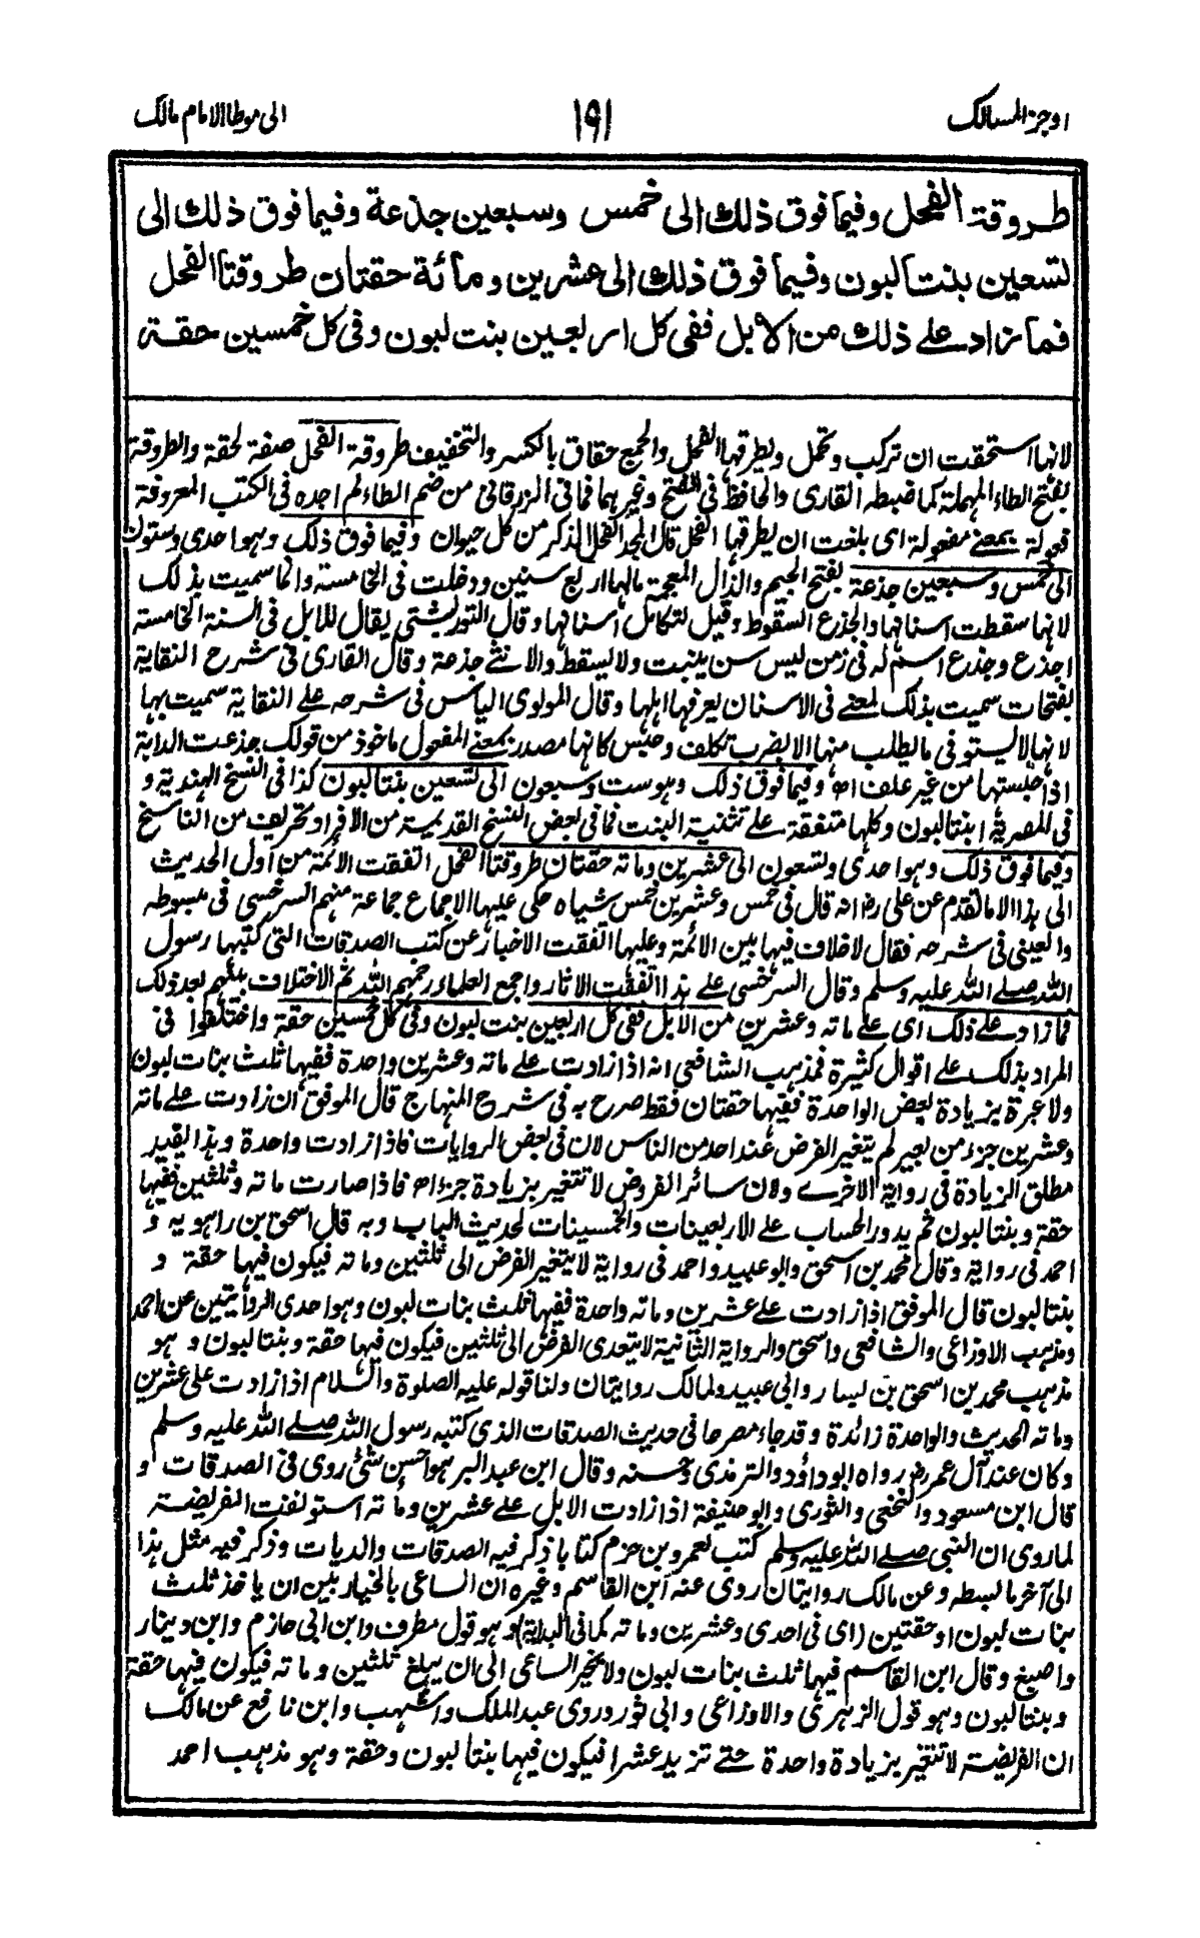 اوجز المسالك ١٩١ الى موطا الامام مالك
طروقة الفحل وفيما فوق ذلك الى خمس وسبعين جذعة وفيما فوق ذلك الى
تسعين بنتا لبون وفيما فوق ذلك الى عشرين ومائة حقتان طروقتا الفحل
فما زاد على ذلك من الابل ففى كل اربعين بنت لبون وفى كل خمسين حقة
لانها استحقت ان تركب وتحمل ويطرقها الفحل والجمع حقاق بالكسر والتخفيف طروقة الفحل صفة لحقة والطروقة
بفتح الطاء المهملة كما ضبطه القارى والحافظ فى الفتح وغيرهما فما فى الزرقانى من ضم الطاء لم اجده فى الكتب المعروفة
فعولة بمعنى مفعولة اى بلغت ان يطرقها الفحل قال المجد الفحل الذكر من كل حيوان وفيما فوق ذلك وهو احدى وستون
الى خمس وسبعين جذعة بفتح الجيم والذال المعجمة مالها اربع سنين ودخلت فى الخامسة وانما سميت بذلك
لانها سقطت اسنانها والجذع السقوط وقيل لتكامل اسنانها وقال التوربشتى يقال للابل فى السنة الخامسة
اجذع وجذع اسم له فى زمن ليس سن ينبت ولا يسقط والانثى جذعة وقال القارى فى شرح النقاية
بفتحات سميت بذلك لمعنى فى الاسنان يعرفها اهلها وقال المولوى الياس فى شرحه على النقاية سميت بها
لانها لا يستوفى ما يطلب منها الا بضرب تكلف وحبس كانها مصدر بمعنى المفعول ماخوذ من قولك جذعت الدابة
اذا حبستها من غير علف اه وفيما فوق ذلك وهو ست وسبعون الى تسعين بنتا لبون كذا فى النسخ الهندية و
فى المصرية ابنتا لبون وكلها متفقة على تثنية البنت فما فى بعض النسخ القديمة من الافراد تحريف من الناسخ
وفيما فوق ذلك وهو احدى وتسعون الى عشرين ومائة حقتان طروقتا الفحل اتفقت الائمة من اول الحديث
الى هذا الا ما تقدم عن على رض انه قال فى خمس وعشرين خمس شياه حكى عليها الاجماع جماعة منهم السرخسى فى مبسوطه
والعينى فى شرحه فقال لا خلاف فيها بين الائمة وعليها اتفقت الاخبار عن كتب الصدقات التى كتبها رسول
الله صلى الله عليه وسلم وقال السرخسى على هذا اتفقت الاثار واجمع العلماء رحمهم الله ثم الاختلاف بينهم بعد ذلك
فما زاد على ذلك اى على مائة وعشرين من الابل ففى كل اربعين بنت لبون وفى كل خمسين حقة واختلفوا فى
المراد بذلك على اقوال كثيرة فمذهب الشافعى انه اذا زادت على مائة وعشرين واحدة ففيها ثلث بنات لبون
ولا عبرة بزيادة بعض الواحدة ففيها حقتان فقط صرح به فى شرح المنهاج قال الموفق ان زادت على مائة
وعشرين جزء من بعير لم يتغير الفرض عند احد من الناس لان فى بعض الروايات فاذا زادت واحدة وهذا القيد
مطلق الزيادة فى رواية الاخرى ولان سائر الفروض لا تتغير بزيادة جزء اه فاذا صارت مائة وثلثين ففيها
حقة وبنتا لبون ثم يدور الحساب على الاربعينات والخمسينات لحديث الباب وبه قال اسحق بن راهويه و
احمد فى رواية وقال محمد بن اسحق وابو عبيد واحمد فى رواية لا يتغير الفرض الى ثلثين ومائة فيكون فيها حقة و
بنتا لبون قال الموفق اذا زادت على عشرين ومائة واحدة ففيها ثلث بنات لبون وهو احدى الروايتين عن احمد
ومذهب الاوزاعى والشافعى واسحق والرواية الثانية لا يتعدى الفرض الى ثلثين فيكون فيها حقة وبنتا لبون وهو
مذهب محمد بن اسحق بن يسار وابى عبيد ولمالك روايتان ولنا قوله عليه الصلوة والسلام اذا زادت على عشرين
ومائة الحديث والواحدة زائدة وقد جاء مصرحا فى حديث الصدقات الذى كتبه رسول الله صلى الله عليه وسلم
وكان عند آل عمر رض رواه ابو داؤد والترمذى وحسنه وقال ابن عبد البر هو احسن شئ روى فى الصدقات و
قال ابن مسعود والنخعى والثورى وابو حنيفة اذا زادت الابل على عشرين ومائة استونفت الفريضة
لما روى ان النبى صلى الله عليه وسلم كتب لعمرو بن حزم كتابا ذكر فيه الصدقات والديات وذكر فيه مثل هذا
الى آخر ما بسطه وعن مالك روايتان روى عنه ابن القاسم وغيره ان الساعى بالخيار بين ان ياخذ ثلث
بنات لبون او حقتين (اى فى احدى وعشرين ومائة كما فى البداية) وهو قول مطرف وابن ابى حازم وابن دينار
واصبغ وقال ابن القاسم فيها ثلث بنات لبون ولا يخير الساعى الى ان يبلغ ثلثين ومائة فيكون فيها حقة
وبنتا لبون وهو قول الزهرى والاوزاعى وابى ثور وروى عبد الملك واشهب وابن نافع عن مالك
ان الفريضة لا تتغير بزيادة واحدة حتى تزيد عشرا فيكون فيها بنتا لبون وحقة وهو مذهب احمد